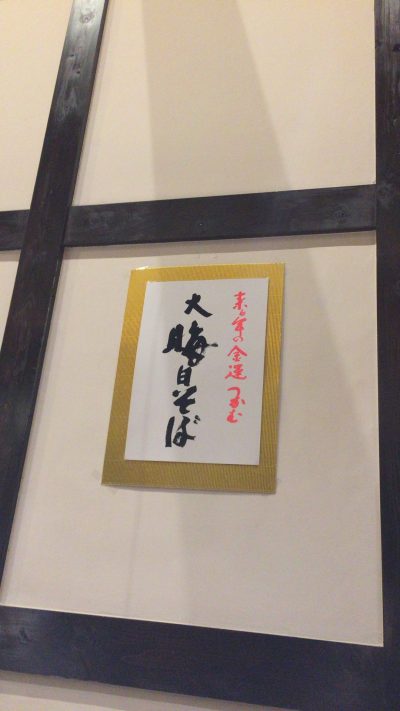 来る年の金運つかむ
大晦日そば